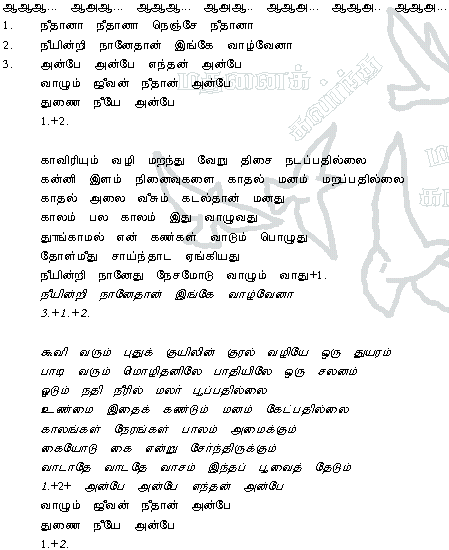 ஆஆஆ... ஆஅஆ... ஆஆஆ... ஆஅஆ.. ஆஆஅ... ஆஆஅ.. ஆஆஅ...
1. நீதானா நீதானா நெஞ்சே நீதானா
2. நீயின்றி நானேதான் இங்கே வாழ்வேனா
3. அன்பே அன்பே எந்தன் அன்பே
வாழும் ஜீவன் நீதான் அன்பே
துணை நீயே அன்பே
1.+2.
காவிரியும் வழி மறந்து வேறு திசை நடப்பதில்லை
கன்னி இளம் நினைவுகளை காதல் மனம் மறப்பதில்லை
காதல் அலை வீசும் கடல்தான் மனது
காலம் பல காலம் இது வாழுவது
தூங்காமல் என் கண்கள் வாடும் பொழுது
தோள்மீது சாய்ந்தாட ஏங்கியது
நீயின்றி நானேது நேசமோடு வாழும் வாது+1.
நீயின்றி நானேதான் இங்கே வாழ்வேனா
3.+1.+2.
கூவி வரும் புதுக் குயிலின் குரல் வழியே ஒரு துயரம்
பாடி வரும் மொழிதனிலே பாதியிலே ஒரு சலனம்
ஓடும் நதி நீரில் மலர் பூப்பதில்லை
உண்மை இதைக் கண்டும் மனம் கேட்பதில்லை
காலங்கள் நேரங்கள் பாலம் அமைக்கும்
கையோடு கை என்று சேர்ந்திருக்கும்
வாடாதே வாடதே வாசம் இந்தப் பூவைத் தேடும்
1.+2+ அன்பே அன்பே எந்தன் அன்பே
வாழும் ஜீவன் நீதான் அன்பே
துணை நீயே அன்பே
1.+2.